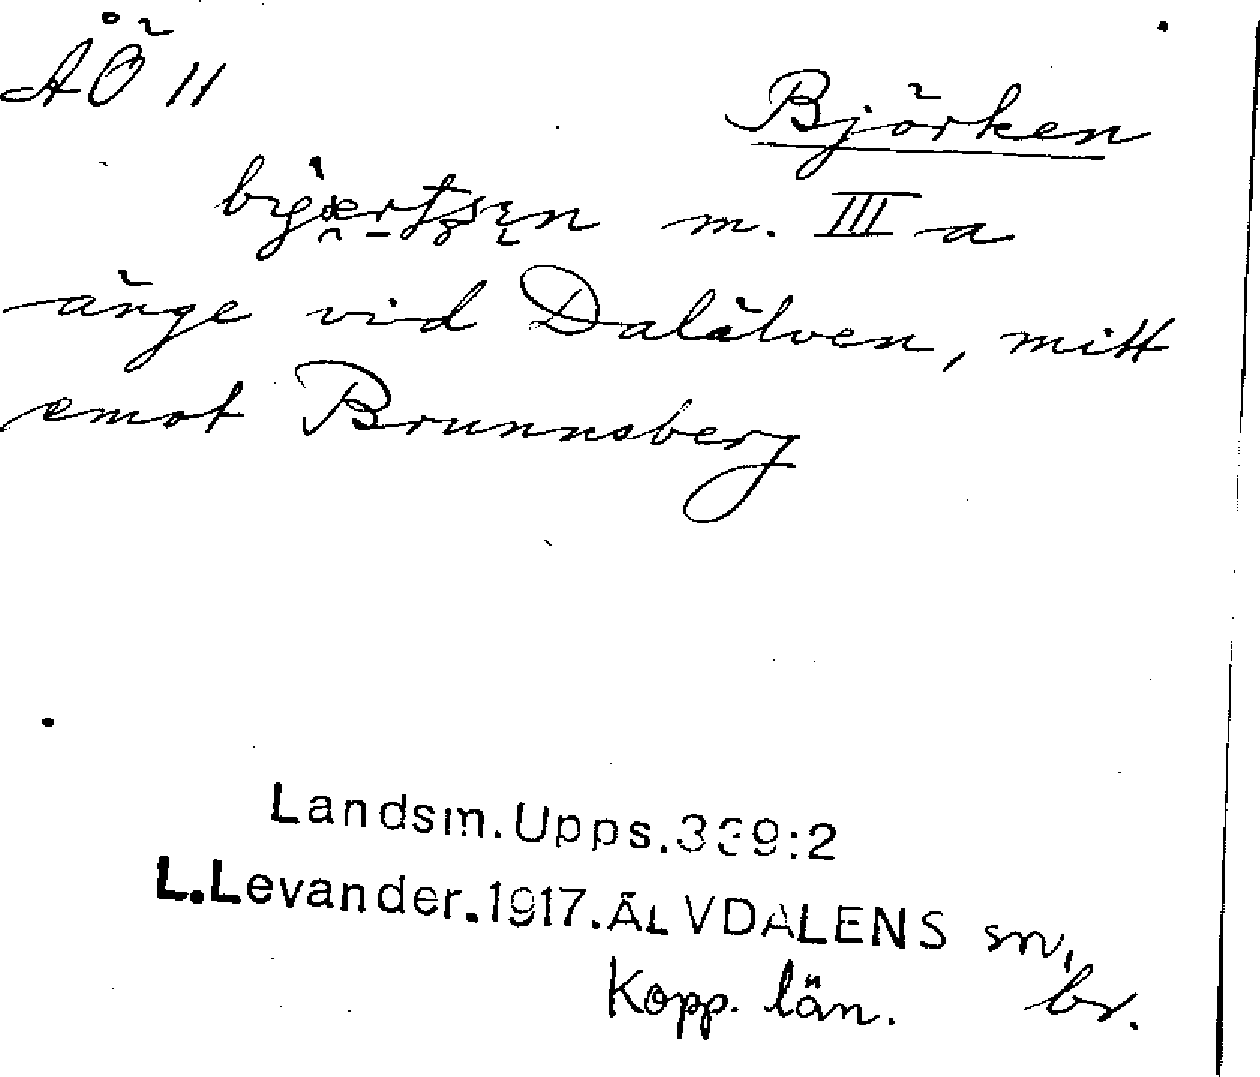 ÅÖ 11
Björken
m. III a
änge vid Dalälven, mitt
emot Brunnsberg
Landsm. Upps. 339:2
L. Levander. 1917. ÄLVDALENS sn,
Kopp. län. br.